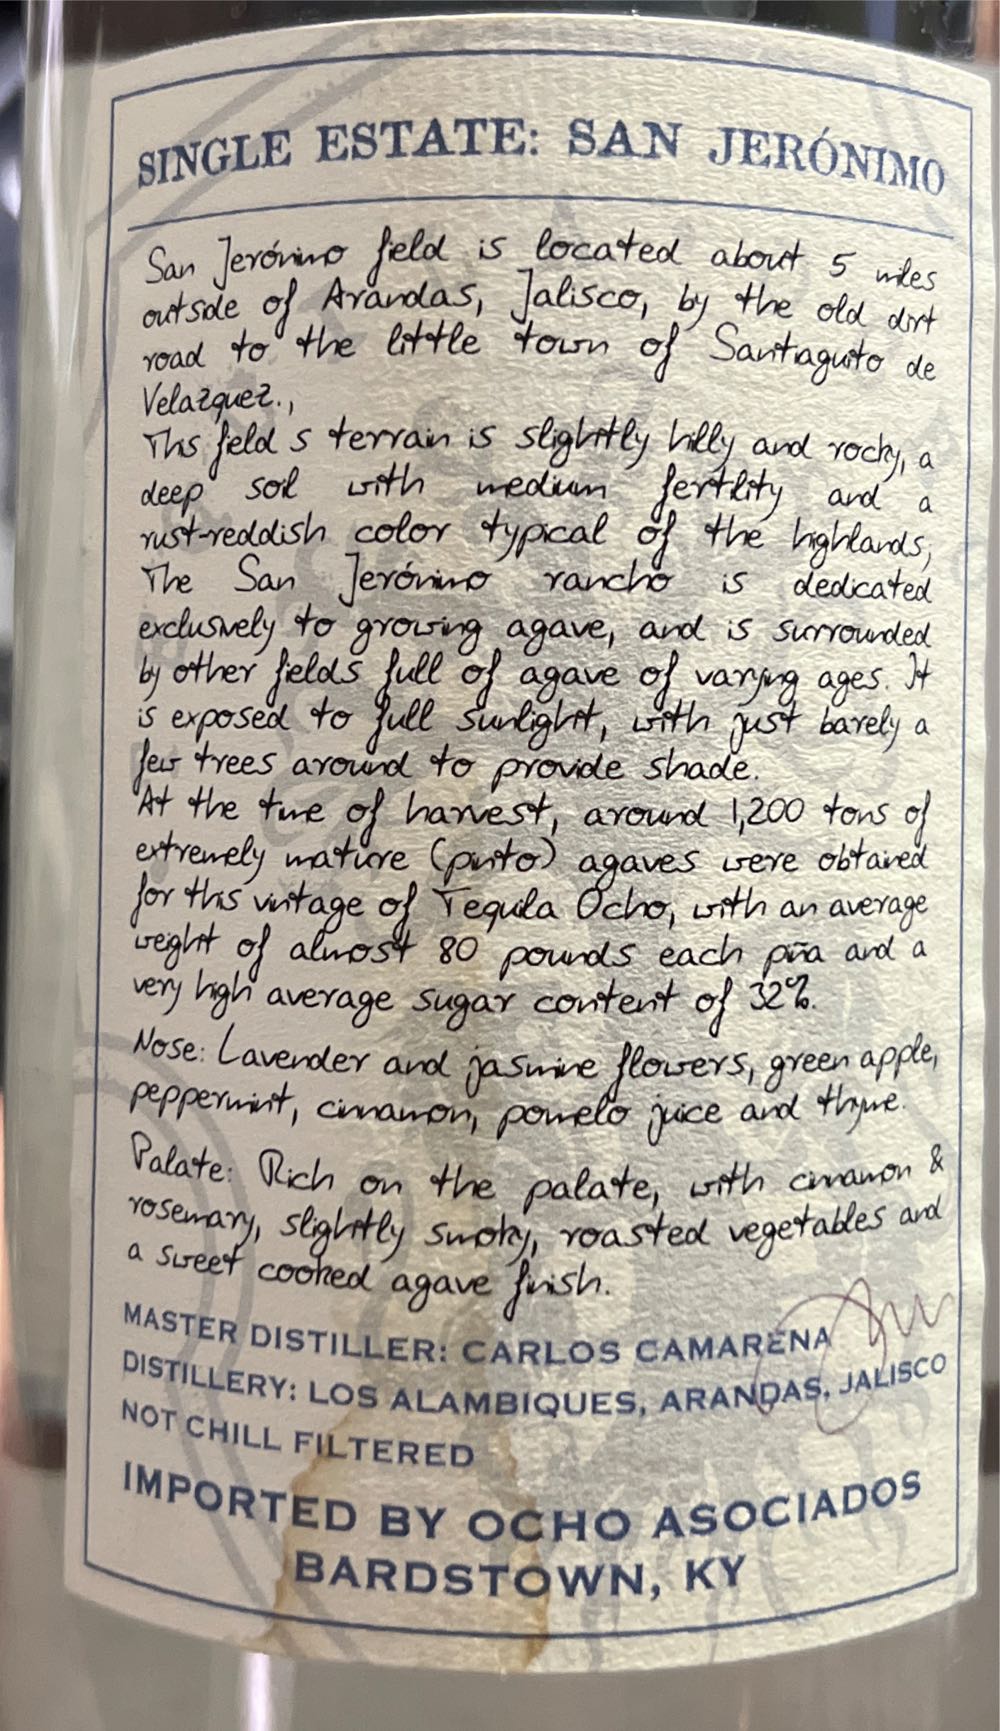 SINGLE ESTATE: SAN JERÓNIMO
San Jerónimo field is located about 5 miles
outside of Arandas, Jalisco, by the old dirt
road to the little town of Santiaguito de
Velazquez.,
This field s terrain is slightly hilly and rocky, a
deep soil with medium fertility and a
rust-reddish color typical of the highlands,
The San Jerónimo rancho is dedicated
exclusively to growing agave, and is surrounded
by other fields full of agave of varying ages. It
is exposed to full sunlight, with just barely a
few trees around to provide shade.
At the time of harvest, around 1,200 tons of
extremely mature (pinto) agaves were obtained
for this vintage of Tequila Ocho, with an average
weight of almost 80 pounds each piña and a
very high average sugar content of 32%.
Nose: Lavender and jasmine flowers, green apple,
peppermint, cinnamon, pomelo juice and thyme.
Palate: Rich on the palate, with cinnamon &
rosemary, slightly smoky, roasted vegetables and
a sweet cooked agave finish.
MASTER DISTILLER: CARLOS CAMARENA
DISTILLERY: LOS ALAMBIQUES, ARANDAS, JALISCO
NOT CHILL FILTERED
IMPORTED BY OCHO ASOCIADOS
BARDSTOWN, KY